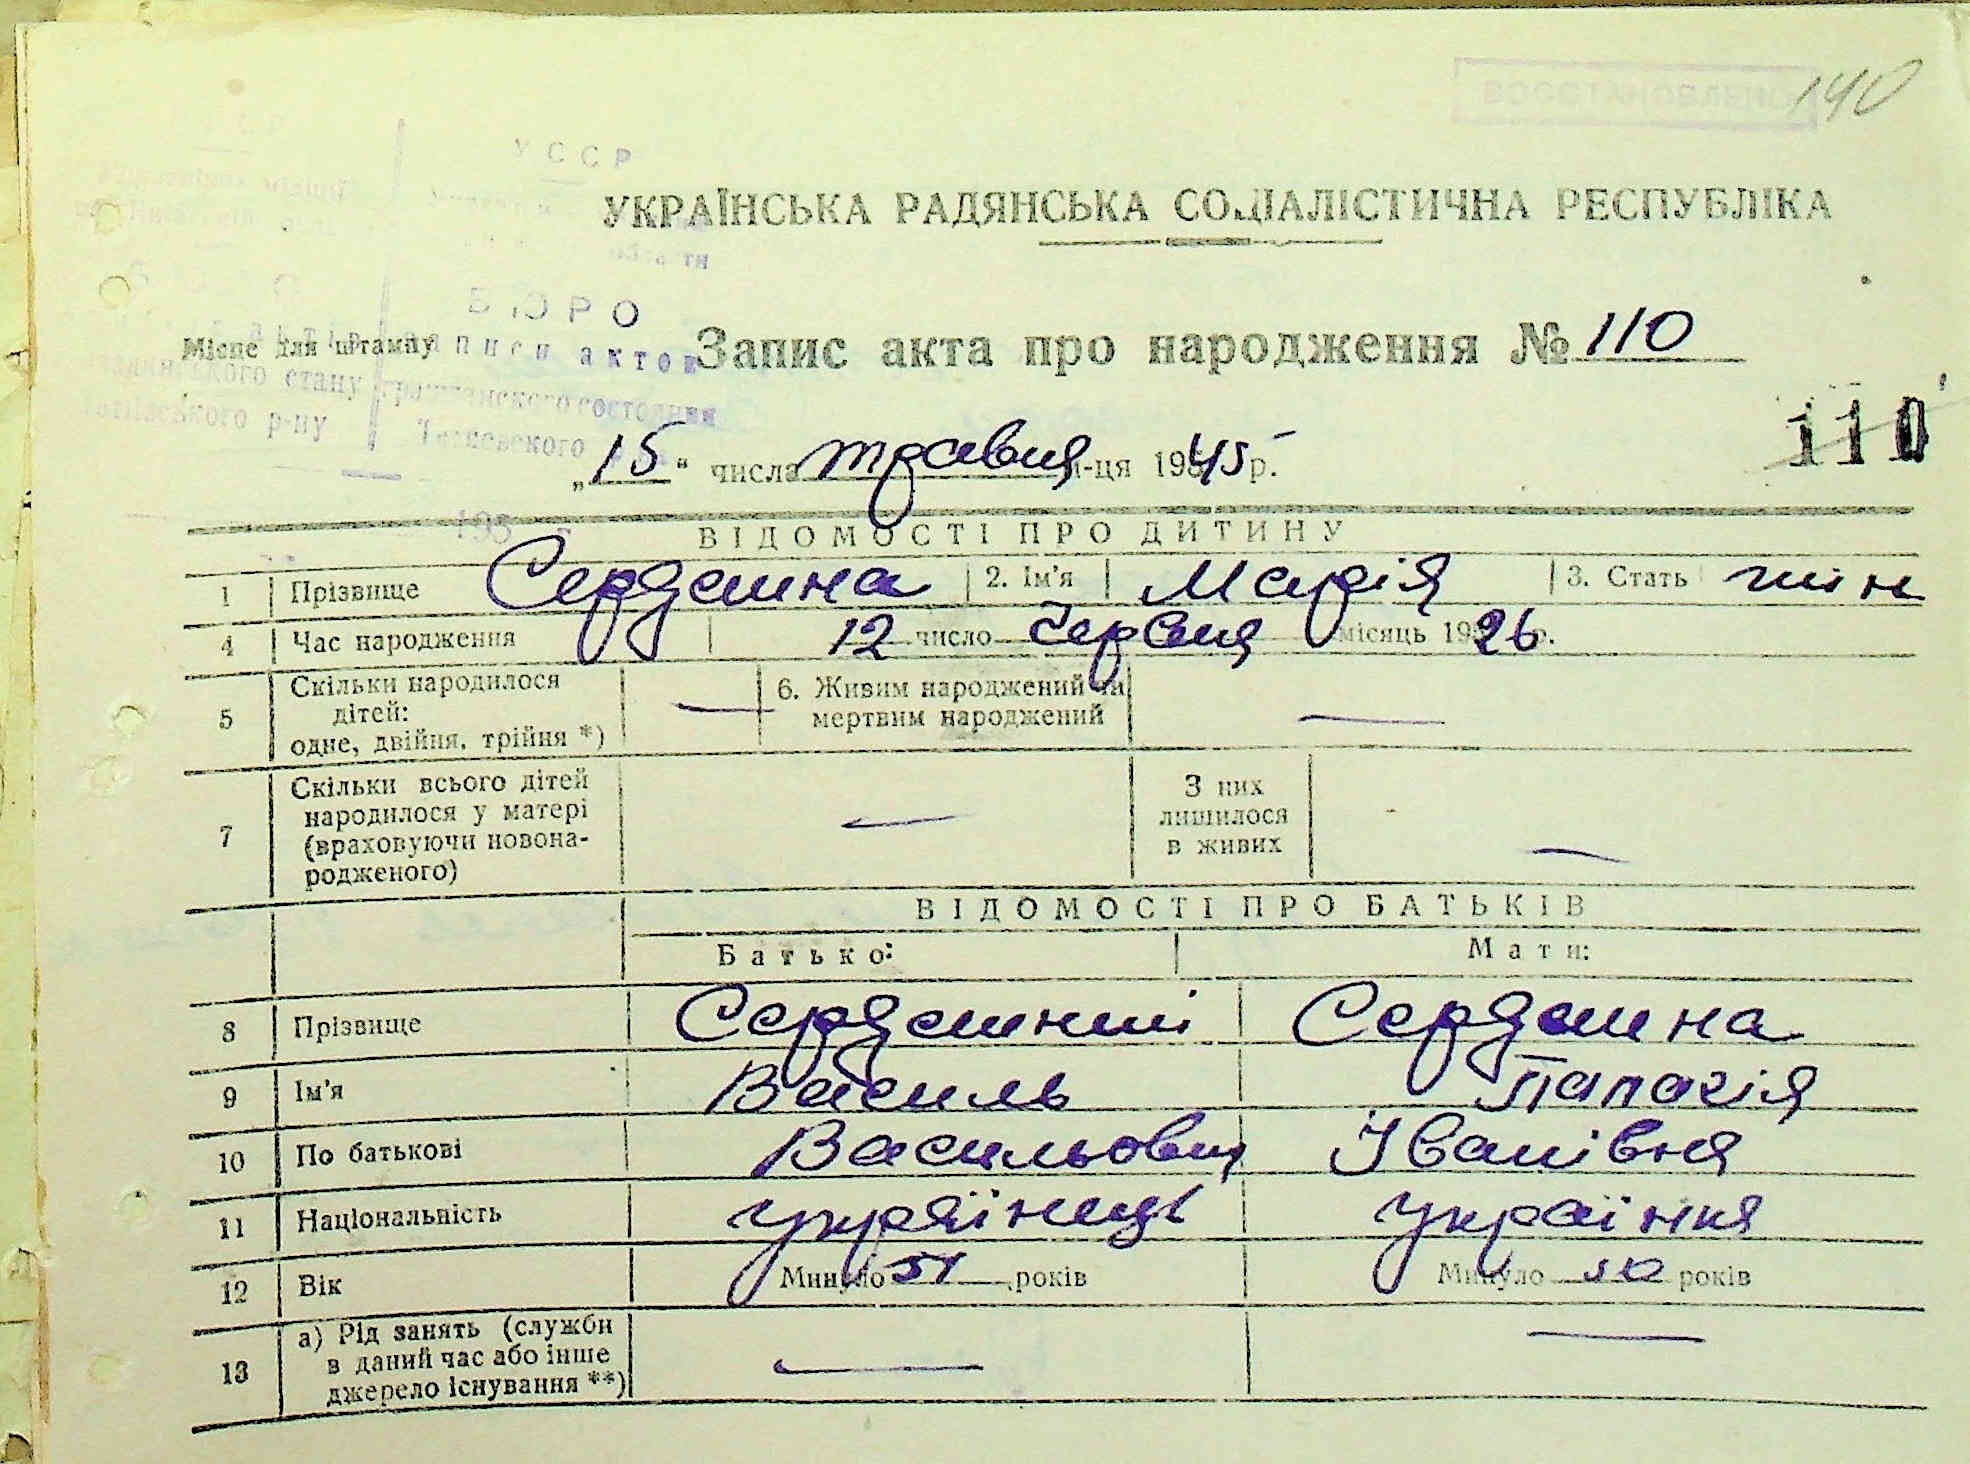 ВОССТАНОВЛЕНО 140
УССР
УКРАЇНСЬКА РАДЯНСЬКА СОЦІАЛІСТИЧНА РЕСПУБЛІКА
області
БЮРО
Місце для штампу записи актов
Запис акта про народження № 110
гражданского состояния
Тетиевского
110
„15" числа травня м-ця 1945 р.
195
ВІДОМОСТІ ПРО ДИТИНУ
1 Прізвище Сердешна 2. Ім'я Марія 3. Стать жін
4 Час народження 12 число червня місяць 1926 р.
5 Скільки народилося дітей: одне, двійня, трійня *) — 6. Живим народжений чи мертвим народжений —
7 Скільки всього дітей народилося у матері (враховуючи новонародженого) — З них лишилося в живих —
ВІДОМОСТІ ПРО БАТЬКІВ
Батько: Мати:
8 Прізвище Сердешний Сердешна
9 Ім'я Василь Палагія
10 По батькові Васильович Іванівна
11 Національність українець українка
12 Вік Минуло 51 років Минуло 50 років
13 а) Рід занять (служби в даний час або інше джерело існування **) — —